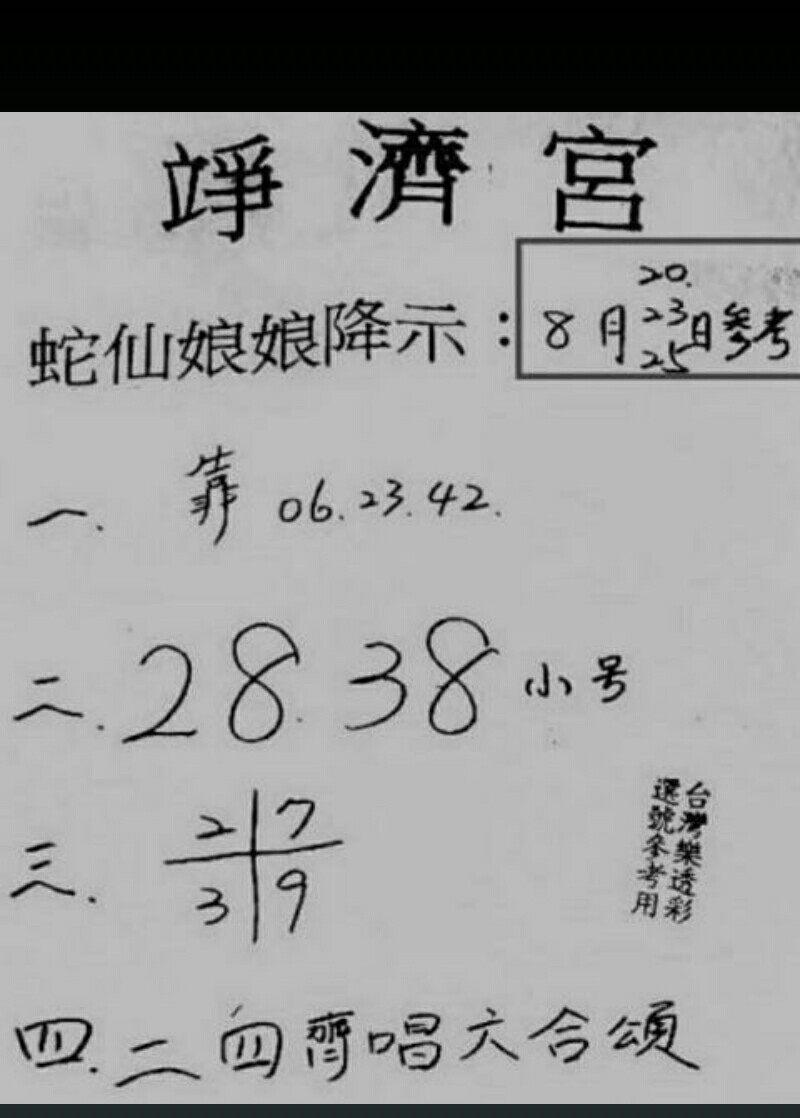 竫濟宮
蛇仙娘娘降示：
8月20.23.25日參考
一. 靠 06.23.42.
二. 28.38 小号
三. 2 7
3 9
台灣樂透彩
選號參考用
四. 二四齊唱六合頌